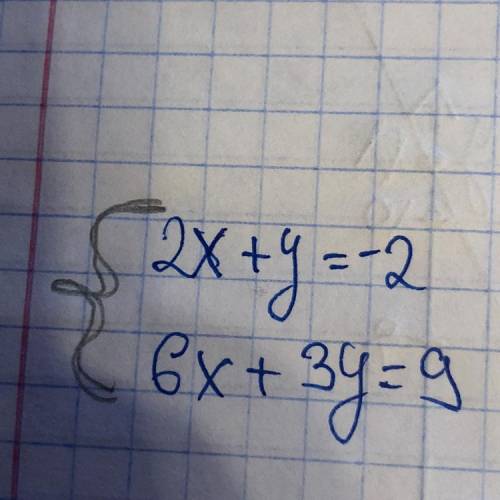 2x + y = -2
6x + 3y = 9